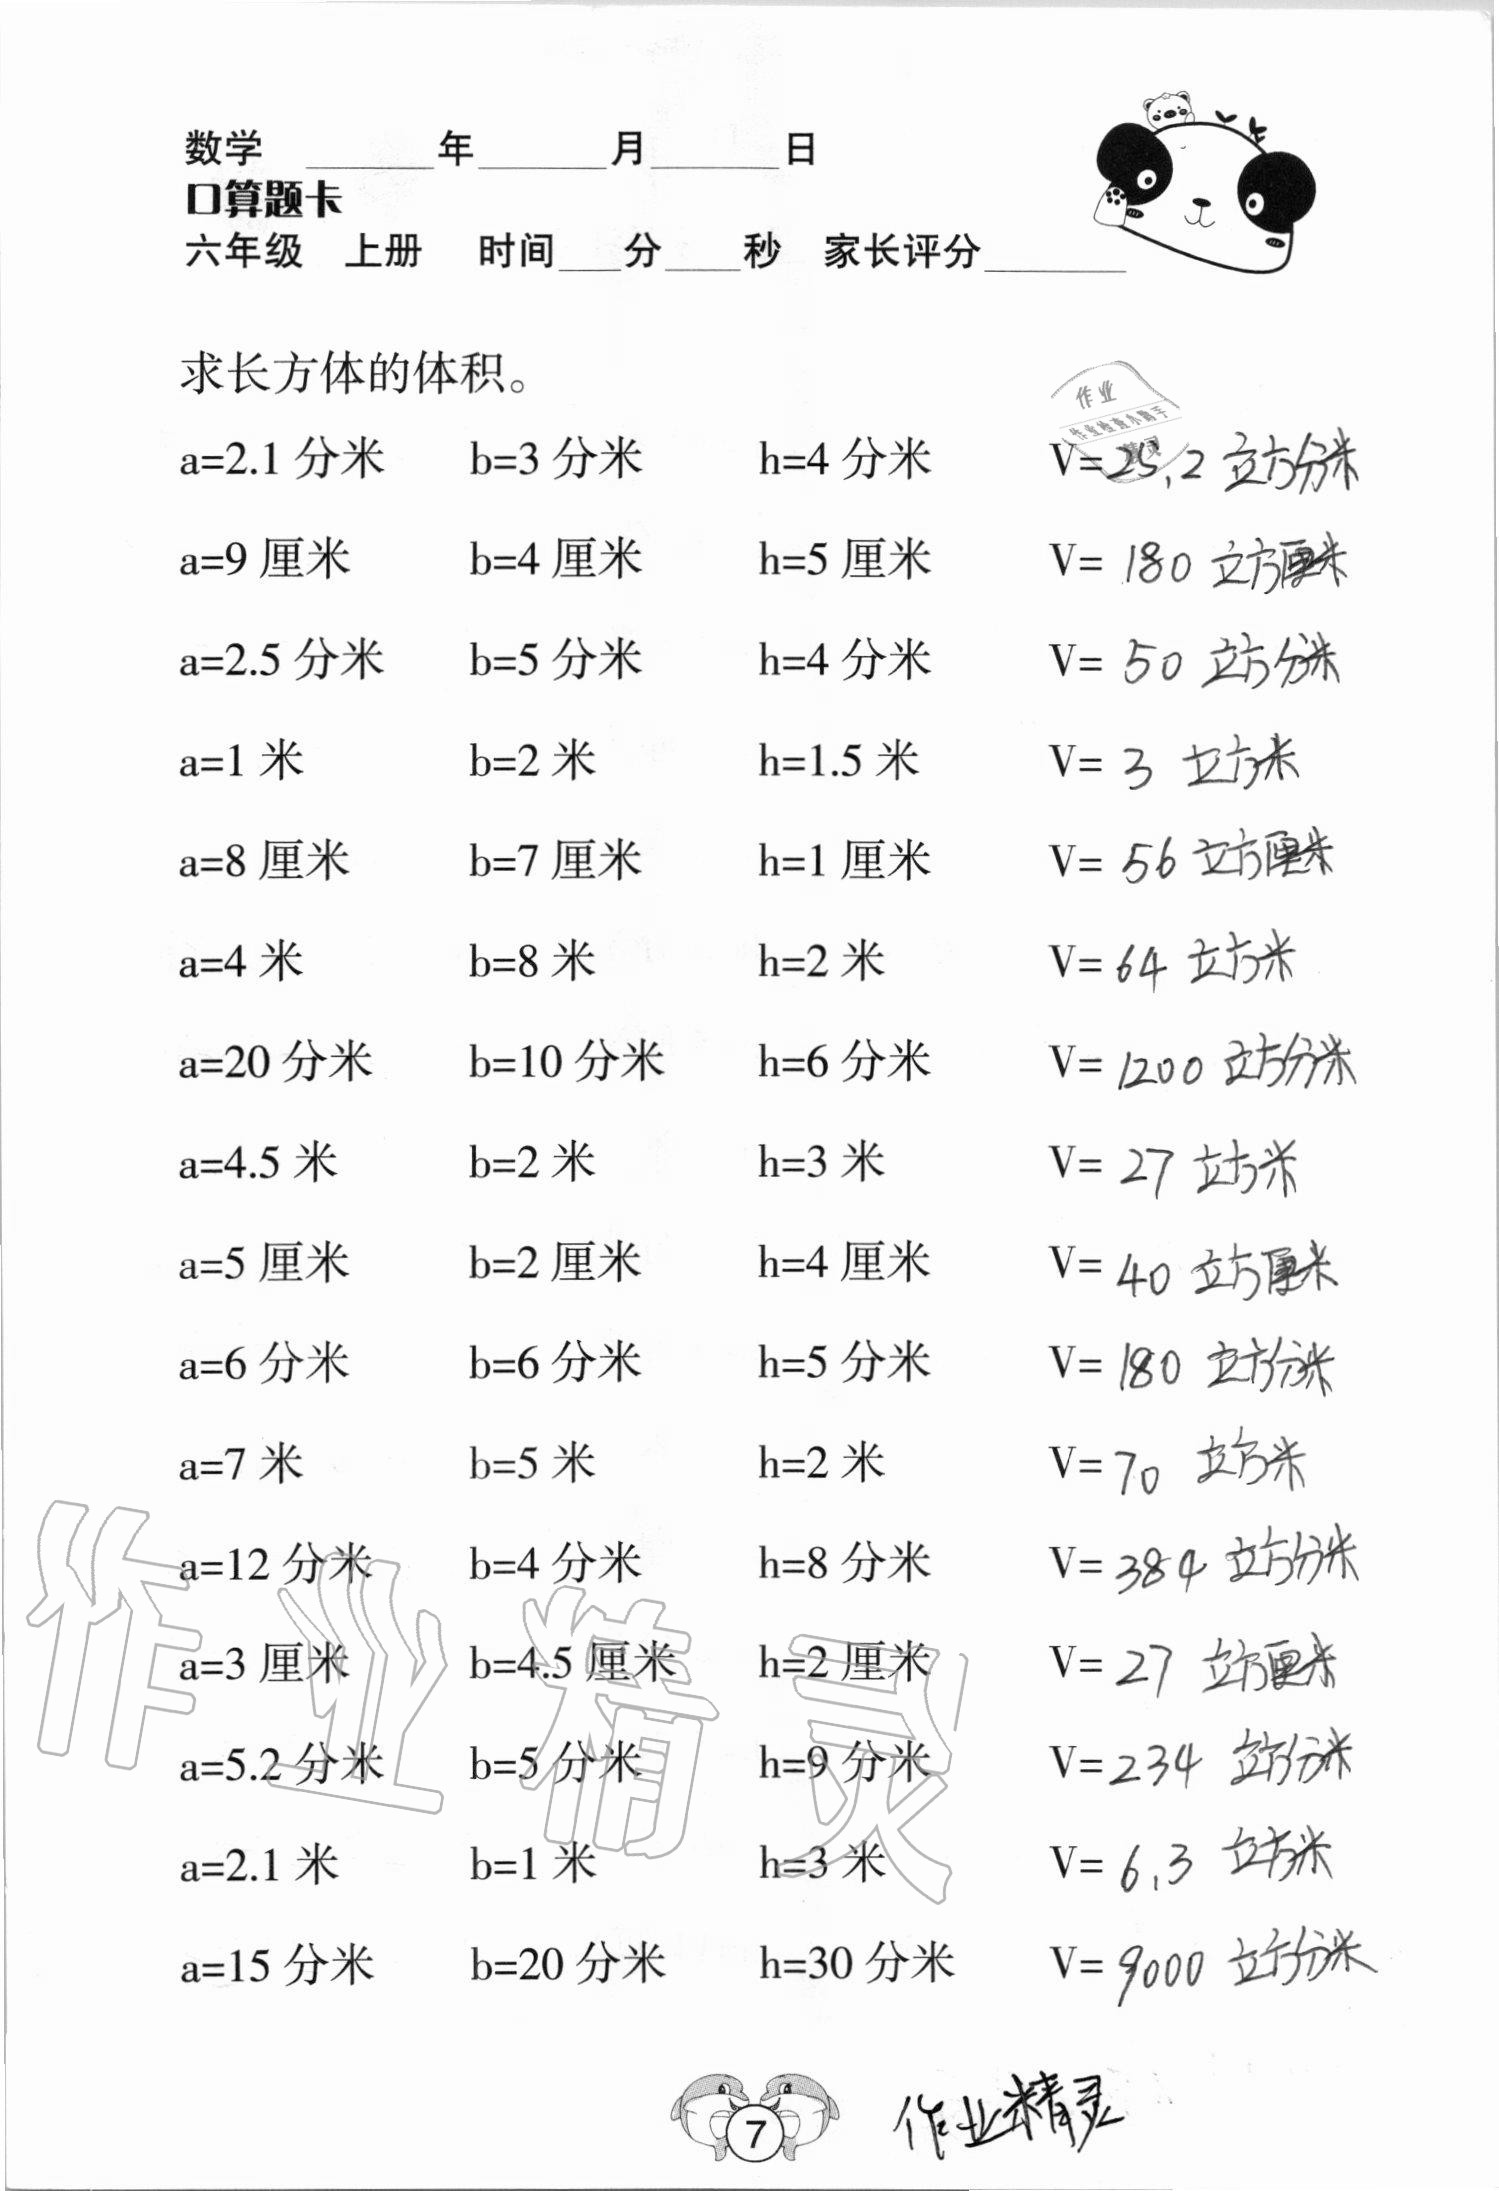 数学 ______年______月______日
口算题卡
六年级 上册 时间___分___秒 家长评分______
求长方体的体积。
作业
作业检查小助手
精灵
a=2.1 分米 b=3 分米 h=4 分米 V=25.2 立方分米
a=9 厘米 b=4 厘米 h=5 厘米 V= 180 立方厘米
a=2.5 分米 b=5 分米 h=4 分米 V= 50 立方分米
a=1 米 b=2 米 h=1.5 米 V= 3 立方米
a=8 厘米 b=7 厘米 h=1 厘米 V= 56 立方厘米
a=4 米 b=8 米 h=2 米 V= 64 立方米
a=20 分米 b=10 分米 h=6 分米 V= 1200 立方分米
a=4.5 米 b=2 米 h=3 米 V= 27 立方米
a=5 厘米 b=2 厘米 h=4 厘米 V= 40 立方厘米
a=6 分米 b=6 分米 h=5 分米 V= 180 立方分米
a=7 米 b=5 米 h=2 米 V= 70 立方米
a=12 分米 b=4 分米 h=8 分米 V= 384 立方分米
a=3 厘米 b=4.5 厘米 h=2 厘米 V= 27 立方厘米
a=5.2 分米 b=5 分米 h=9 分米 V= 234 立方分米
a=2.1 米 b=1 米 h=3 米 V= 6.3 立方米
a=15 分米 b=20 分米 h=30 分米 V= 9000 立方分米
作业精灵
7
作业精灵